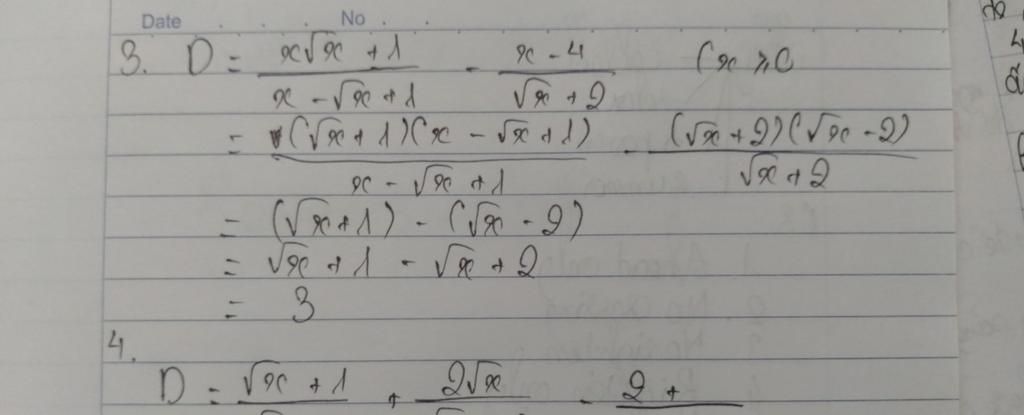 Date No
3. D = (x√x + 1)/(x - √x + 1) - (x - 4)/(√x + 2) (x ≥ 0
= ((√x + 1)(x - √x + 1))/(x - √x + 1) - ((√x + 2)(√x - 2))/(√x + 2)
= (√x + 1) - (√x - 2)
= √x + 1 - √x + 2
= 3
4.
D = √x + 1 + 2√x - 2 +